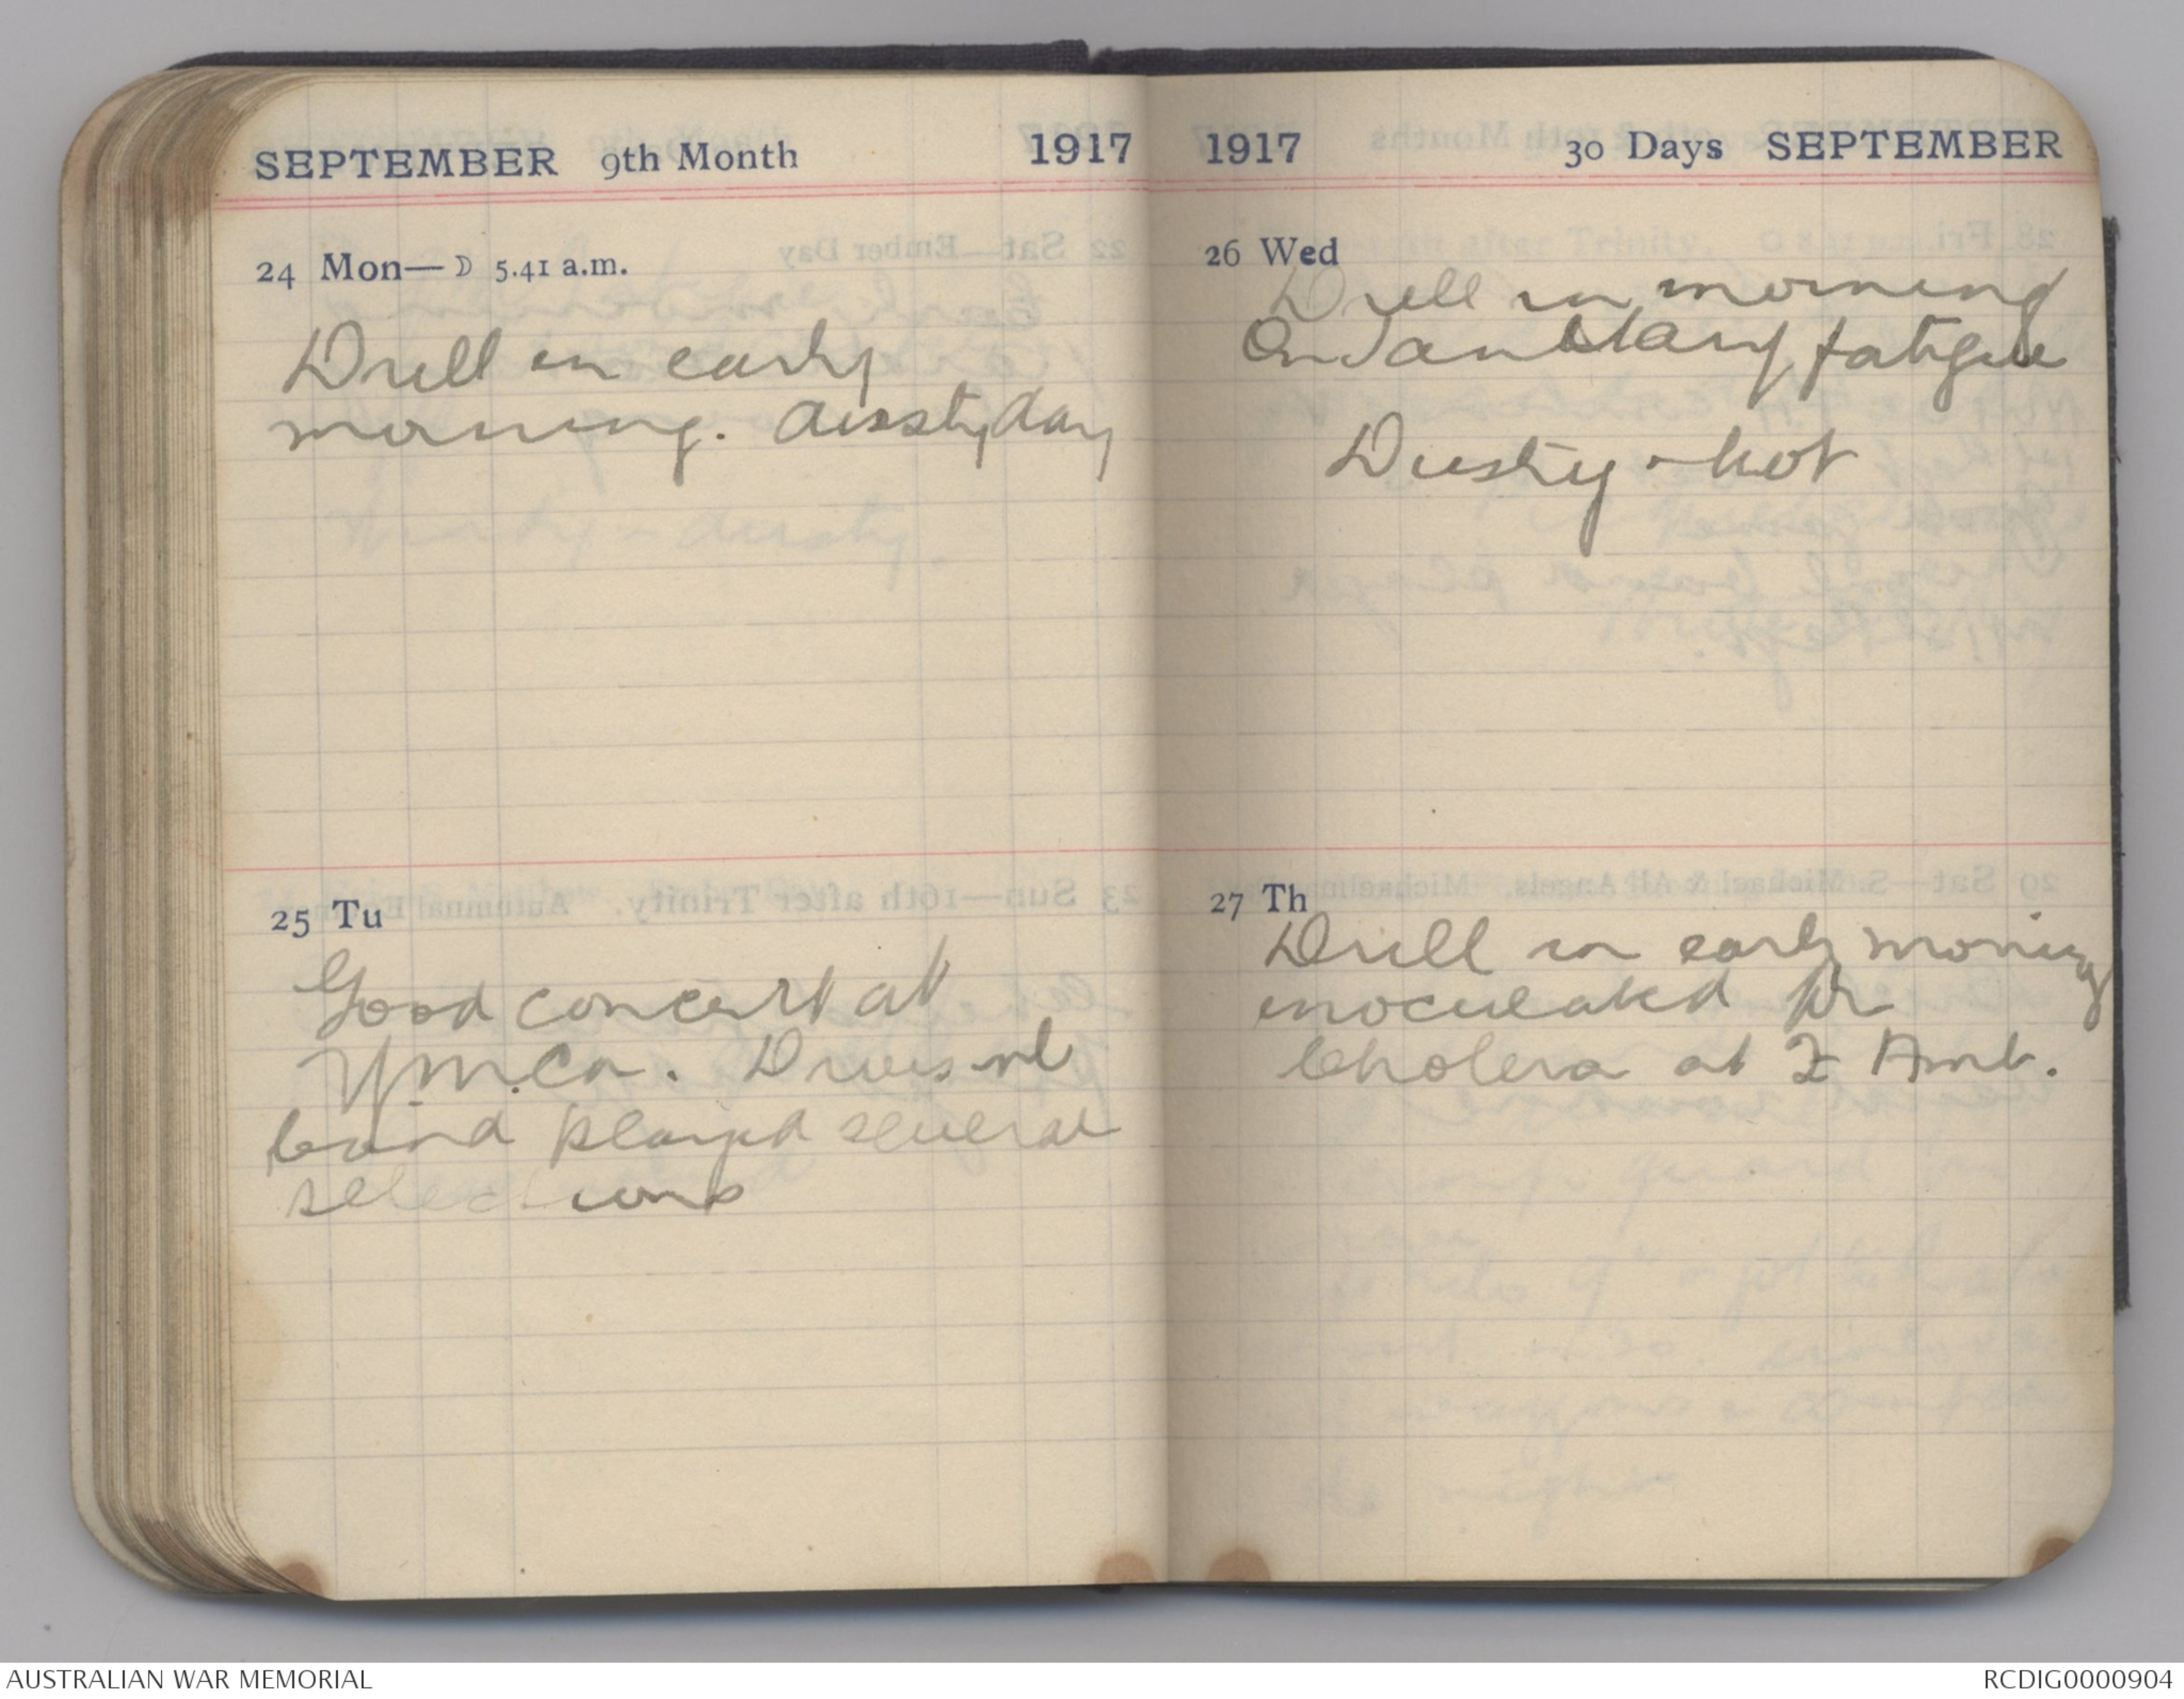 SEPTEMBER 9th Month 1917
24 Mon—☽ 5.41 a.m.
Drill in early
morning. dusty day
25 Tu
Good concert at
Y.M.Ca. Divisnl
band played several
selections
1917 30 Days SEPTEMBER
26 Wed
Drill in morning
On Sanitary fatigue
Dusty & hot
27 Th
Drill in early morning
inoculated for
Cholera at F Amb.
AUSTRALIAN WAR MEMORIAL
RCDIG0000904